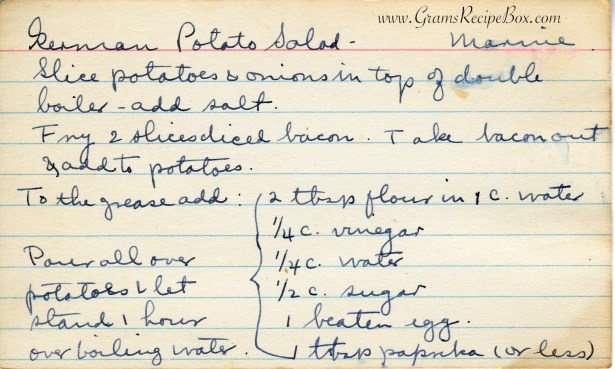 www.GramsRecipeBox.com
German Potato Salad - Marnie
Slice potatoes & onions in top of double
boiler - add salt.
Fry 2 slices diced bacon. Take bacon out
& add to potatoes.
To the grease add: 2 tbsp flour in 1 c. water
1/4 c. vinegar
1/4 c. water
1/2 c. sugar
1 beaten egg.
1 tbsp paprika (or less)
Pour all over
potatoes & let
stand 1 hour
over boiling water.